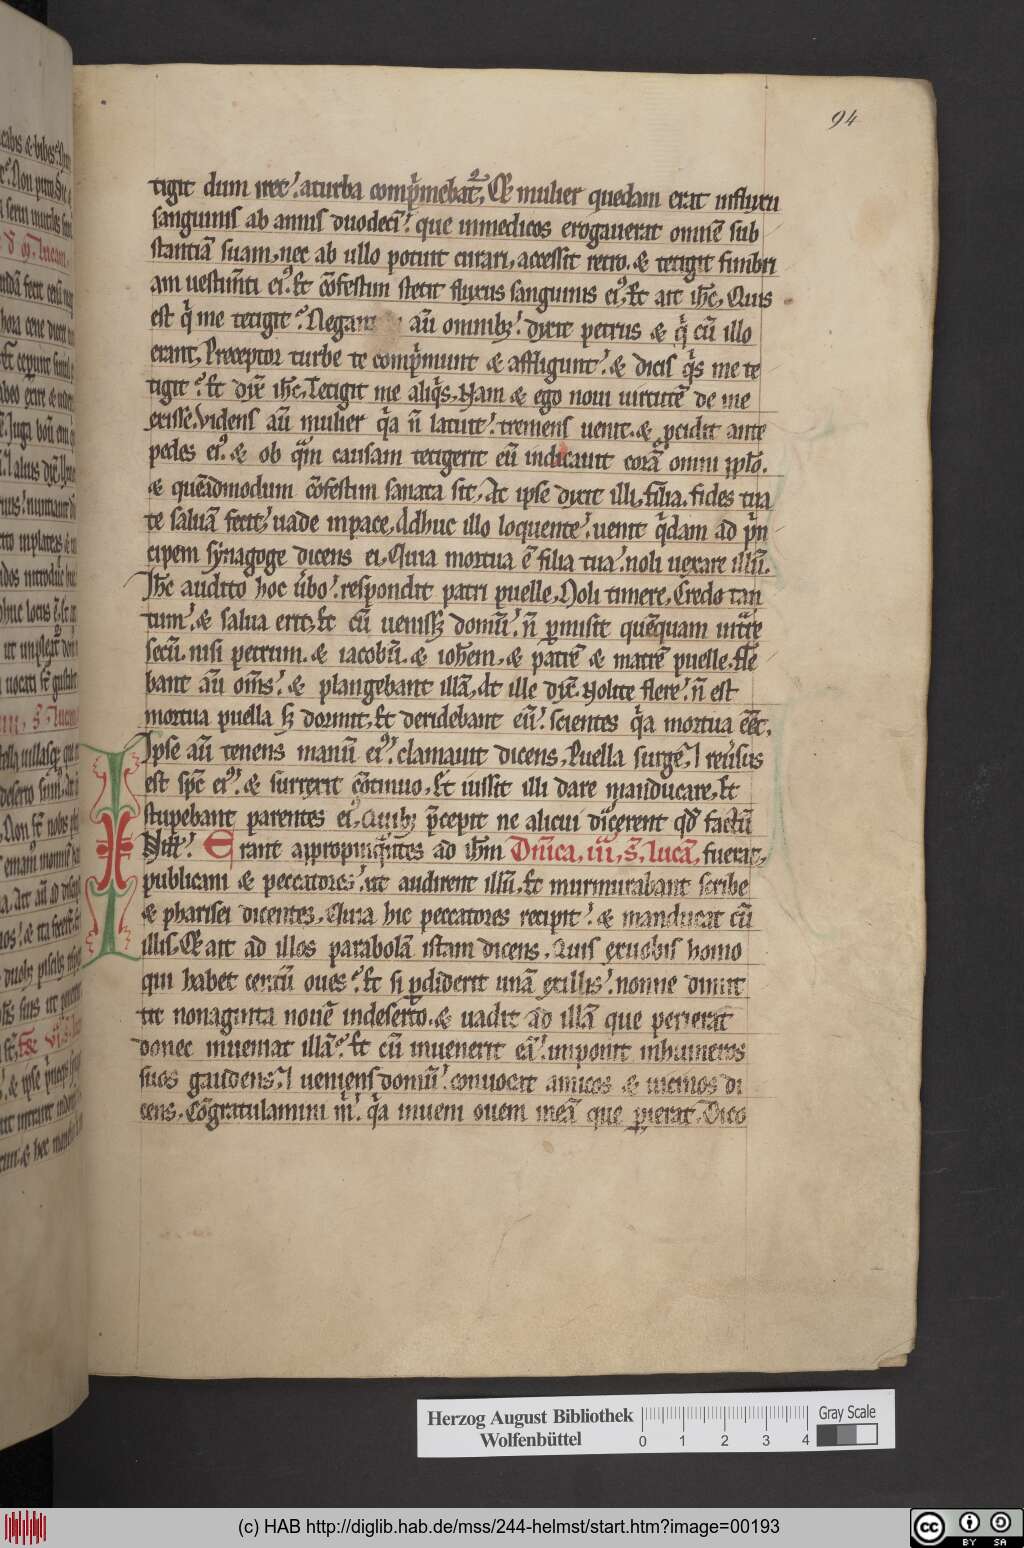 94
tigit dum iret. aturba comp̃mebat̃. Et mulier quedam erat influxu
sanguinis ab annis duodecĩ. que inmedicos erogauerat omnẽ sub
stantiã suam. nec ab ullo potuit curari. accessit retro. & tetigit fimbri
am uestim̃ti eiꝰ. Et cõfestim stetit fluxus sanguinis eiꝰ. Et ait ih̃c. Quis
est q̃ me tetigit. Negant aũ omnibꝫ. dixit petrus & q̃ cũ illo
erant. Preceptor turbe te comp̃munt & affligunt. & dicis q̃s me te
tigit. Et dix̃ ih̃c. Tetigit me aliq̃s. Nam & ego noui uirtutẽ de me
exisse. Videns aũ mulier q̃a ñ latuit. tremens uenit. & ꝓcidit ante
pedes eiꝰ. & ob q̃m causam tetigerit eũ indicauit corã omni pp̃lo.
& quẽadmodum cõfestim sanata sit. At ipse dixit illi. filia. fides tua
te saluã fecit. uade inpace. Adhuc illo loquente. uenit q̃dam ad p̃n
cipem synagoge dicens ei. Quia mortua ẽ filia tua. noli uexare illũ.
Ih̃c audito hoc ũbo. respondit patri puelle. Noli timere. Crede tan
tum. & salua erit. Et cũ uenissꝫ domũ. ñ ꝑmisit quẽquam intr̃re
secũ. nisi petrum. & iacobũ. & ioh̃em. & patrẽ & matrẽ puelle. fle
bant aũ om̃s. & plangebant illã. At ille dix̃. Nolite flere. ñ est
mortua puella sꝫ dormit. Et deridebant eũ. scientes q̃a mortua eẽt.
Ipse aũ tenens manũ eiꝰ. clamauit dicens. Puella surge. ⁊ reũsus
est sp̃c eiꝰ. & surrexit cõtinuo. Et iussit illi dare manducare. Et
stupebant parentes eiꝰ. Quibꝫ p̃cepit ne alicui dicerent qd̃ factũ
Erant appropinq̃ntes ad ih̃m Dñica. iiĩ. s̃. lucã. fuerat.
publicani & peccatores. ut audirent illũ. Et murmurabant scribe
& pharisei dicentes. Quia hic peccatores recipit. & manducat cũ
illis. Et ait ad illos parabolã istam dicens. Quis exuobis homo
qui habet centũ oues. Et si ꝑdiderit unã exillis. nonne dimit
tit nonaginta nouẽ indeserto. & uadit ad illã que perierat
donec inueniat illã. Et cũ inuenerit eã. imponit inhumeros
suos gaudens. ⁊ ueniens domũ. conuocat amicos & uicinos di
cens. Cõgratulamini m̃. q̃a inueni ouem meã que ꝑierat. Dico
Herzog August Bibliothek
Wolfenbüttel
0 1 2 3 4
Gray Scale
(c) HAB http://diglib.hab.de/mss/244-helmst/start.htm?image=00193
cc BY SA